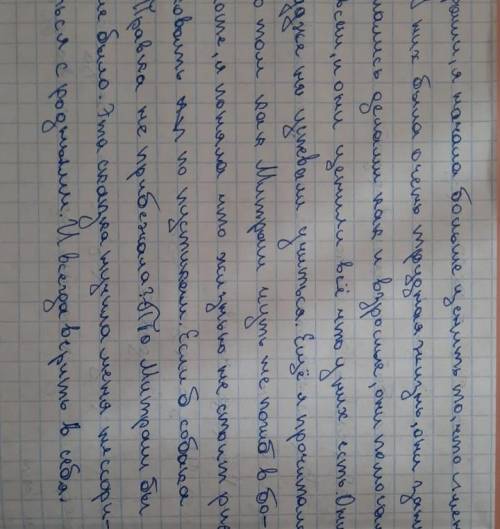 я начала больше ценить то, что и ме
них была очень трудная жизнь, они зан
мались делами как и взрослые, они помога
всем, и они ценили всё что у них есть. Они
даже не успевали учиться. Ещё я прочитала
о том как Митраш чуть не погиб в бо-
лоте, я поняла что жизнью не стоит рис
ковать по пустякам. Если б собака
Травка не прибежала? То Митраш бы
не было. Эта сказка научила меня не ссори-
ться с родными. И всегда верить в себя.